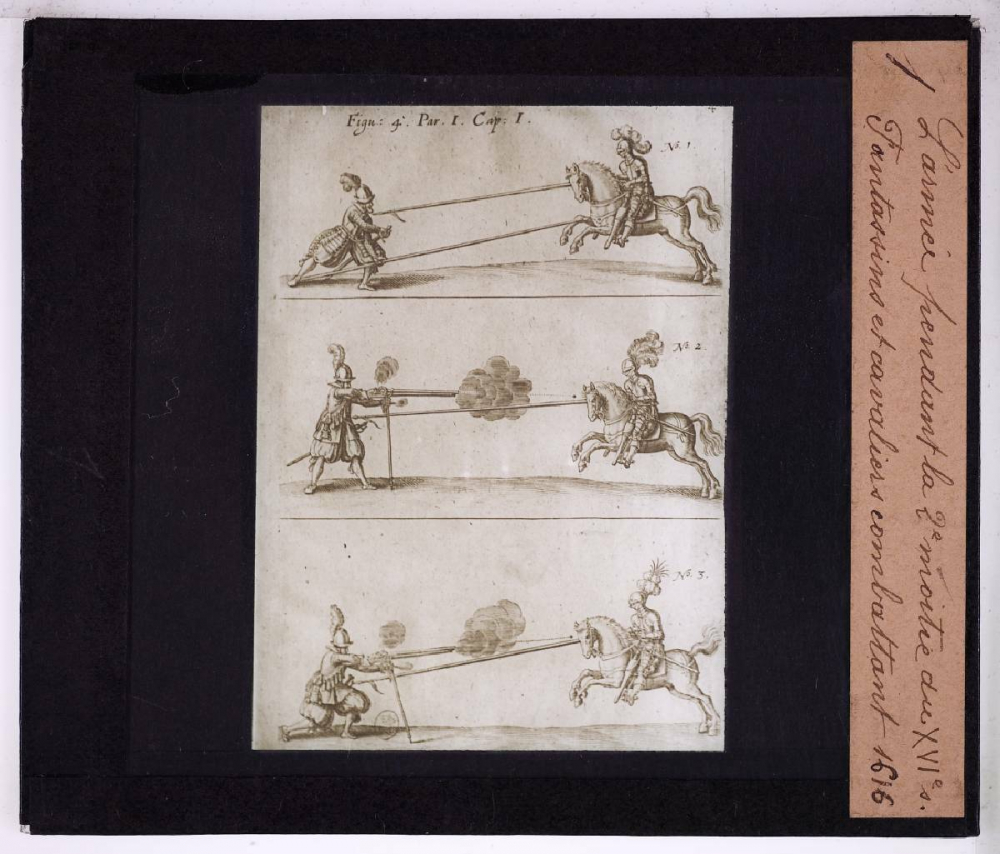 Figu: 4. Par. I. Cap: I.
No. 1
No. 2.
No. 3.
1 L'armée pendant la 2e moitié du XVIe s.
Fantassins et cavaliers combattant 1616